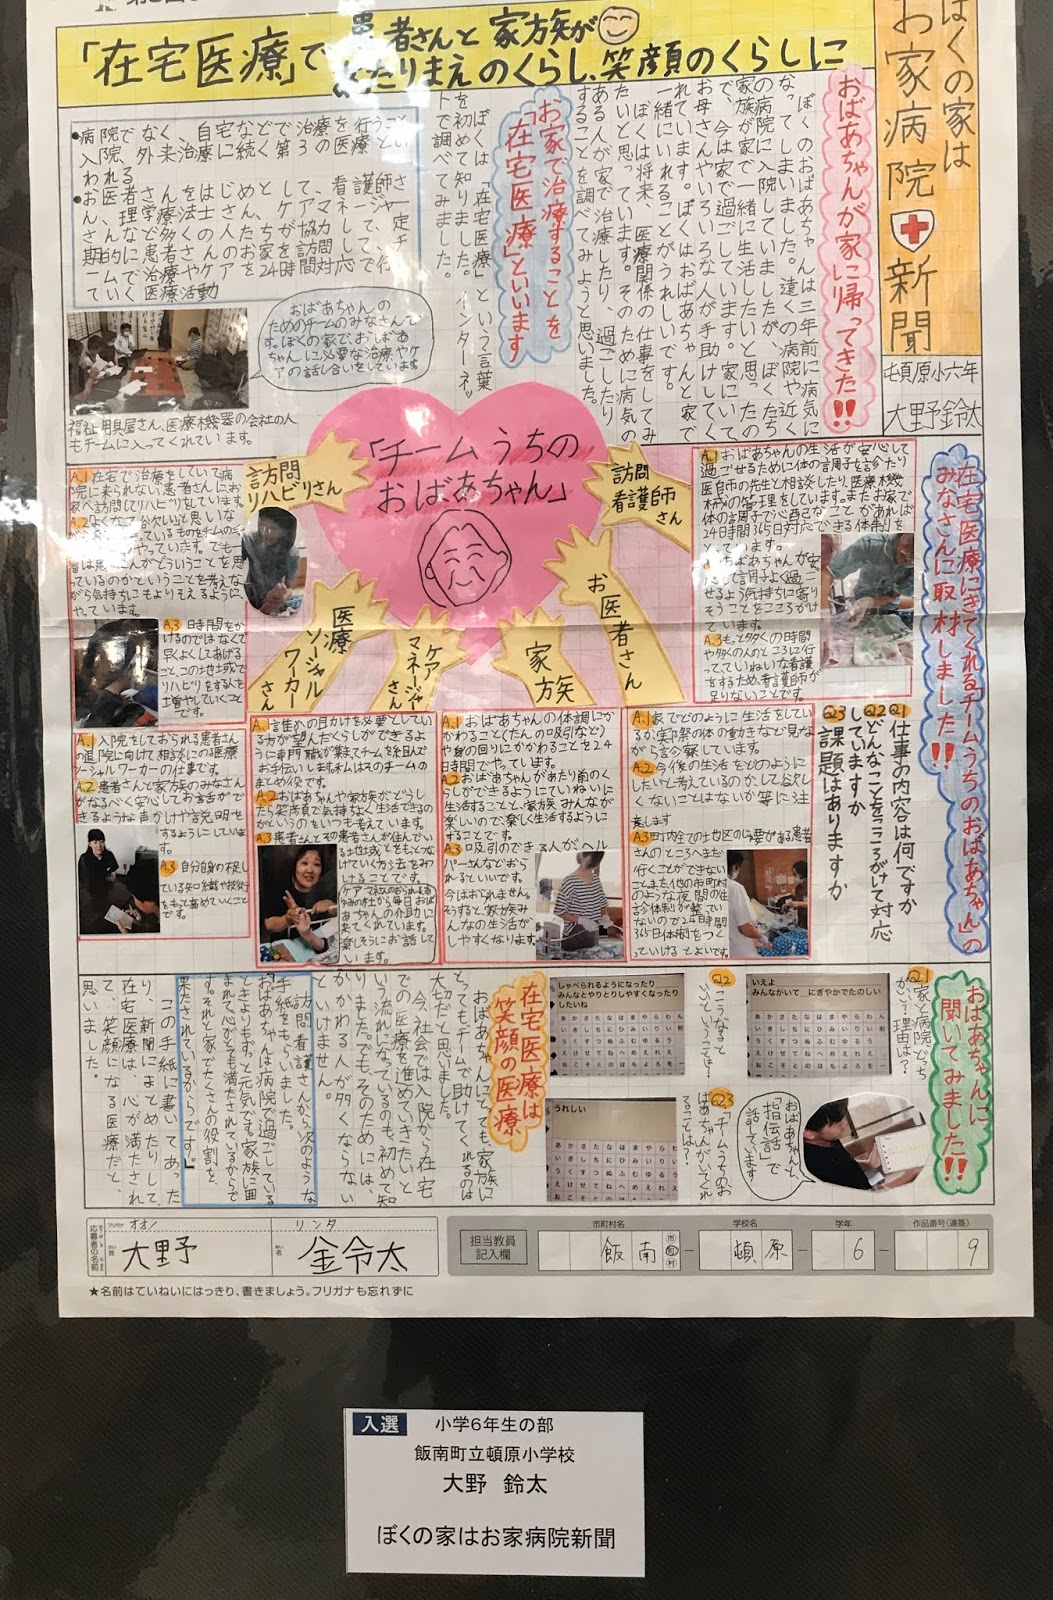 ぼくの家は
お家病院新聞
頓原小六年
大野鈴太
「在宅医療」で患者さんと家族が
あたりまえのくらし、笑顔のくらしに
おばあちゃんが家に帰ってきた!!
ぼくのおばあちゃんは三年前に病気に
なってしまいました。遠くの病院や近く
の病院に入院していましたが、ぼくたち
家族が家で一緒に生活したいと思ったの
で、今は家で過ごしています。家にいて
お母さんやいろいろな人が手助けしてく
れています。ぼくはおばあちゃんと家で
一緒にいれることがうれしいです。
ぼくは将来、医療関係の仕事をしてみ
たいと思っています。そのために病気の
ある人が家で治療したり、過ごしたり
することを調べてみようと思いました。
お家で治療することを
「在宅医療」といいます
ぼくは「在宅医療」という言葉
を初めて知りました。インターネッ
トで調べてみました。
●病院でなく、自宅などで治療を行うこと
入院、外来治療に続く第3の医療とい
われる
●お医者さんをはじめとして、看護師さ
ん、理学療法士さん、ケアマネージャー
さんなど多くの人たちが協力して、定
期的に患者さんのお家を訪問してチ
ームで治療やケアを24時間対応で行
っていく医療活動
おばあちゃんの
ためのチームのみなさんで
す。ぼくの家で、おばあ
ちゃんに必要な治療やケ
アの話し合いをしています
福祉用具屋さん、医療機器の会社の人
もチームに入ってくれています。
「チームうちの
おばあちゃん」
訪問
リハビリさん
医療
ソーシャル
ワーカー
さん
ケア
マネージャー
さん
家族
お医者さん
訪問
看護師
さん
在宅医療にきてくれる「チームうちのおばあちゃん」の
みなさんに取材しました!!
Q1 仕事の内容は何ですか
Q2 どんなことをこころがけて対応
していますか
Q3 課題はありますか
A.1 おばあちゃんの生活が安心して
過ごせるために体の調子を診たり
医師の先生と相談したり、医療機
械の管理をしています。またお家で
体の調子で心配なことがあれば
24時間365日対応できる体制を
とっています。
おばあちゃんが安
心して調子よく過ご
せるよう気持ちに寄り
そうことをこころがけ
ています。
A.3 もっと多くの時間
や多くの人のところに行っ
てていねいな看護
をするため、看護師が
足りないことです。
A.1 在宅で治療をしていて病
院に来られない患者さんにお
家へ訪問してリハビリをしています。
A.3 時間をか
けるのではなくて
早くよくしてあげる
こと、この地域で
リハビリをする人を
増やしていくこと
です。
A.1 入院をしておられる患者さん
の退院に向けて相談にのる医療
ソーシャルワーカーの仕事です。
A.2 患者さんと家族のみなさん
がなるべく安心してお話ができ
るような声かけや説明をする
ようにしていま
す。
A.3 自分自身の不足し
ている知識や技術
をもっと高めていくこと
です。
A.1 誰かの助けを必要としてい
る方が望んだくらしができるよ
うに専門職が集まてチームを組んで
お手伝いします。私はそのチームの
まとめ役です。
A.2 おばあちゃんや家族がどうし
たら笑顔で気持ちよく生活できるの
かというのをいつも考えています。
A.3 患者さんとその患者さんが住んでい
る地域とをもっとつな
げていく方法をみつ
けることです。
A.1 おばあちゃんの体調にか
かわること(たんの吸引など)
や身の回りにかかわることを24
時間でやっています。
A.2 おばあちゃんがあたり前のく
らしができるようにていねいに
生活することと、家族みんなが
楽しいので、楽しく生活するように
することです。
A.3 口吸引のできる人がヘル
パーさんなどおら
れるといいです。
今はおられません。
そうすると、家族み
んなの生活が
しやすくなります。
A.1 家でどのように生活をしてい
るか、実際の体の動きなど見な
がら診察しています。
A.2 今後の生活をどのように
したいと考えているのか、してほし
くないことはないか等に注
意します
A.3 町内全ての地区の必要がある患者
さんのところへまだ
行くことができない
こと。また他の市町村
のような夜間の往
診体制が整ってい
ないので24時間
365日体制をつく
っていけるとよいです。
おばあちゃんに
聞いてみました!!
Q1 家と病院どっち
がいい?理由は?
いえよ
みんながいて にぎやかでたのしい
Q2 こうなると
いいということは?
しゃべられるようになったり
みんなとやりとりしやすくなったり
したいね
Q3 「チームうちのお
ばあちゃん」がいてくれ
ることは?
うれしい
おばあちゃんと、
「指伝話」で
話しています
在宅医療は
笑顔の医療
おばあちゃんにとっても家族に
とってもチームで助けてくれるのは
大切だと思いました。
今、社会では入院から在宅
での医療を進めていきたいと
いう流れになっているのも、初めて知
りました。でも、そのためには、
かかわる人が多くならない
といけません。
訪問看護さんから次のような
手紙をもらいました。
「おばあちゃんは病院で過ごしている
ときよりもずっと元気です。家族に囲
まれて心がとても満たされているからで
す。それと家でたくさんの役割を
果たされているからです。」
この手紙に書いてあった
り、新聞にまとめたりして、
在宅医療は、心が満たされ
て、笑顔になる医療だと、
思いました。
応募者の名前
フリガナ オオノ リンタ
姓 大野 名 鈴太
担当教員
記入欄
市町村名 学校名 学年 作品番号(連番)
飯南 市町村 - 頓原 - 6 - 9
★名前はていねいにはっきり、書きましょう。フリガナも忘れずに
入選 小学6年生の部
飯南町立頓原小学校
大野 鈴太
ぼくの家はお家病院新聞